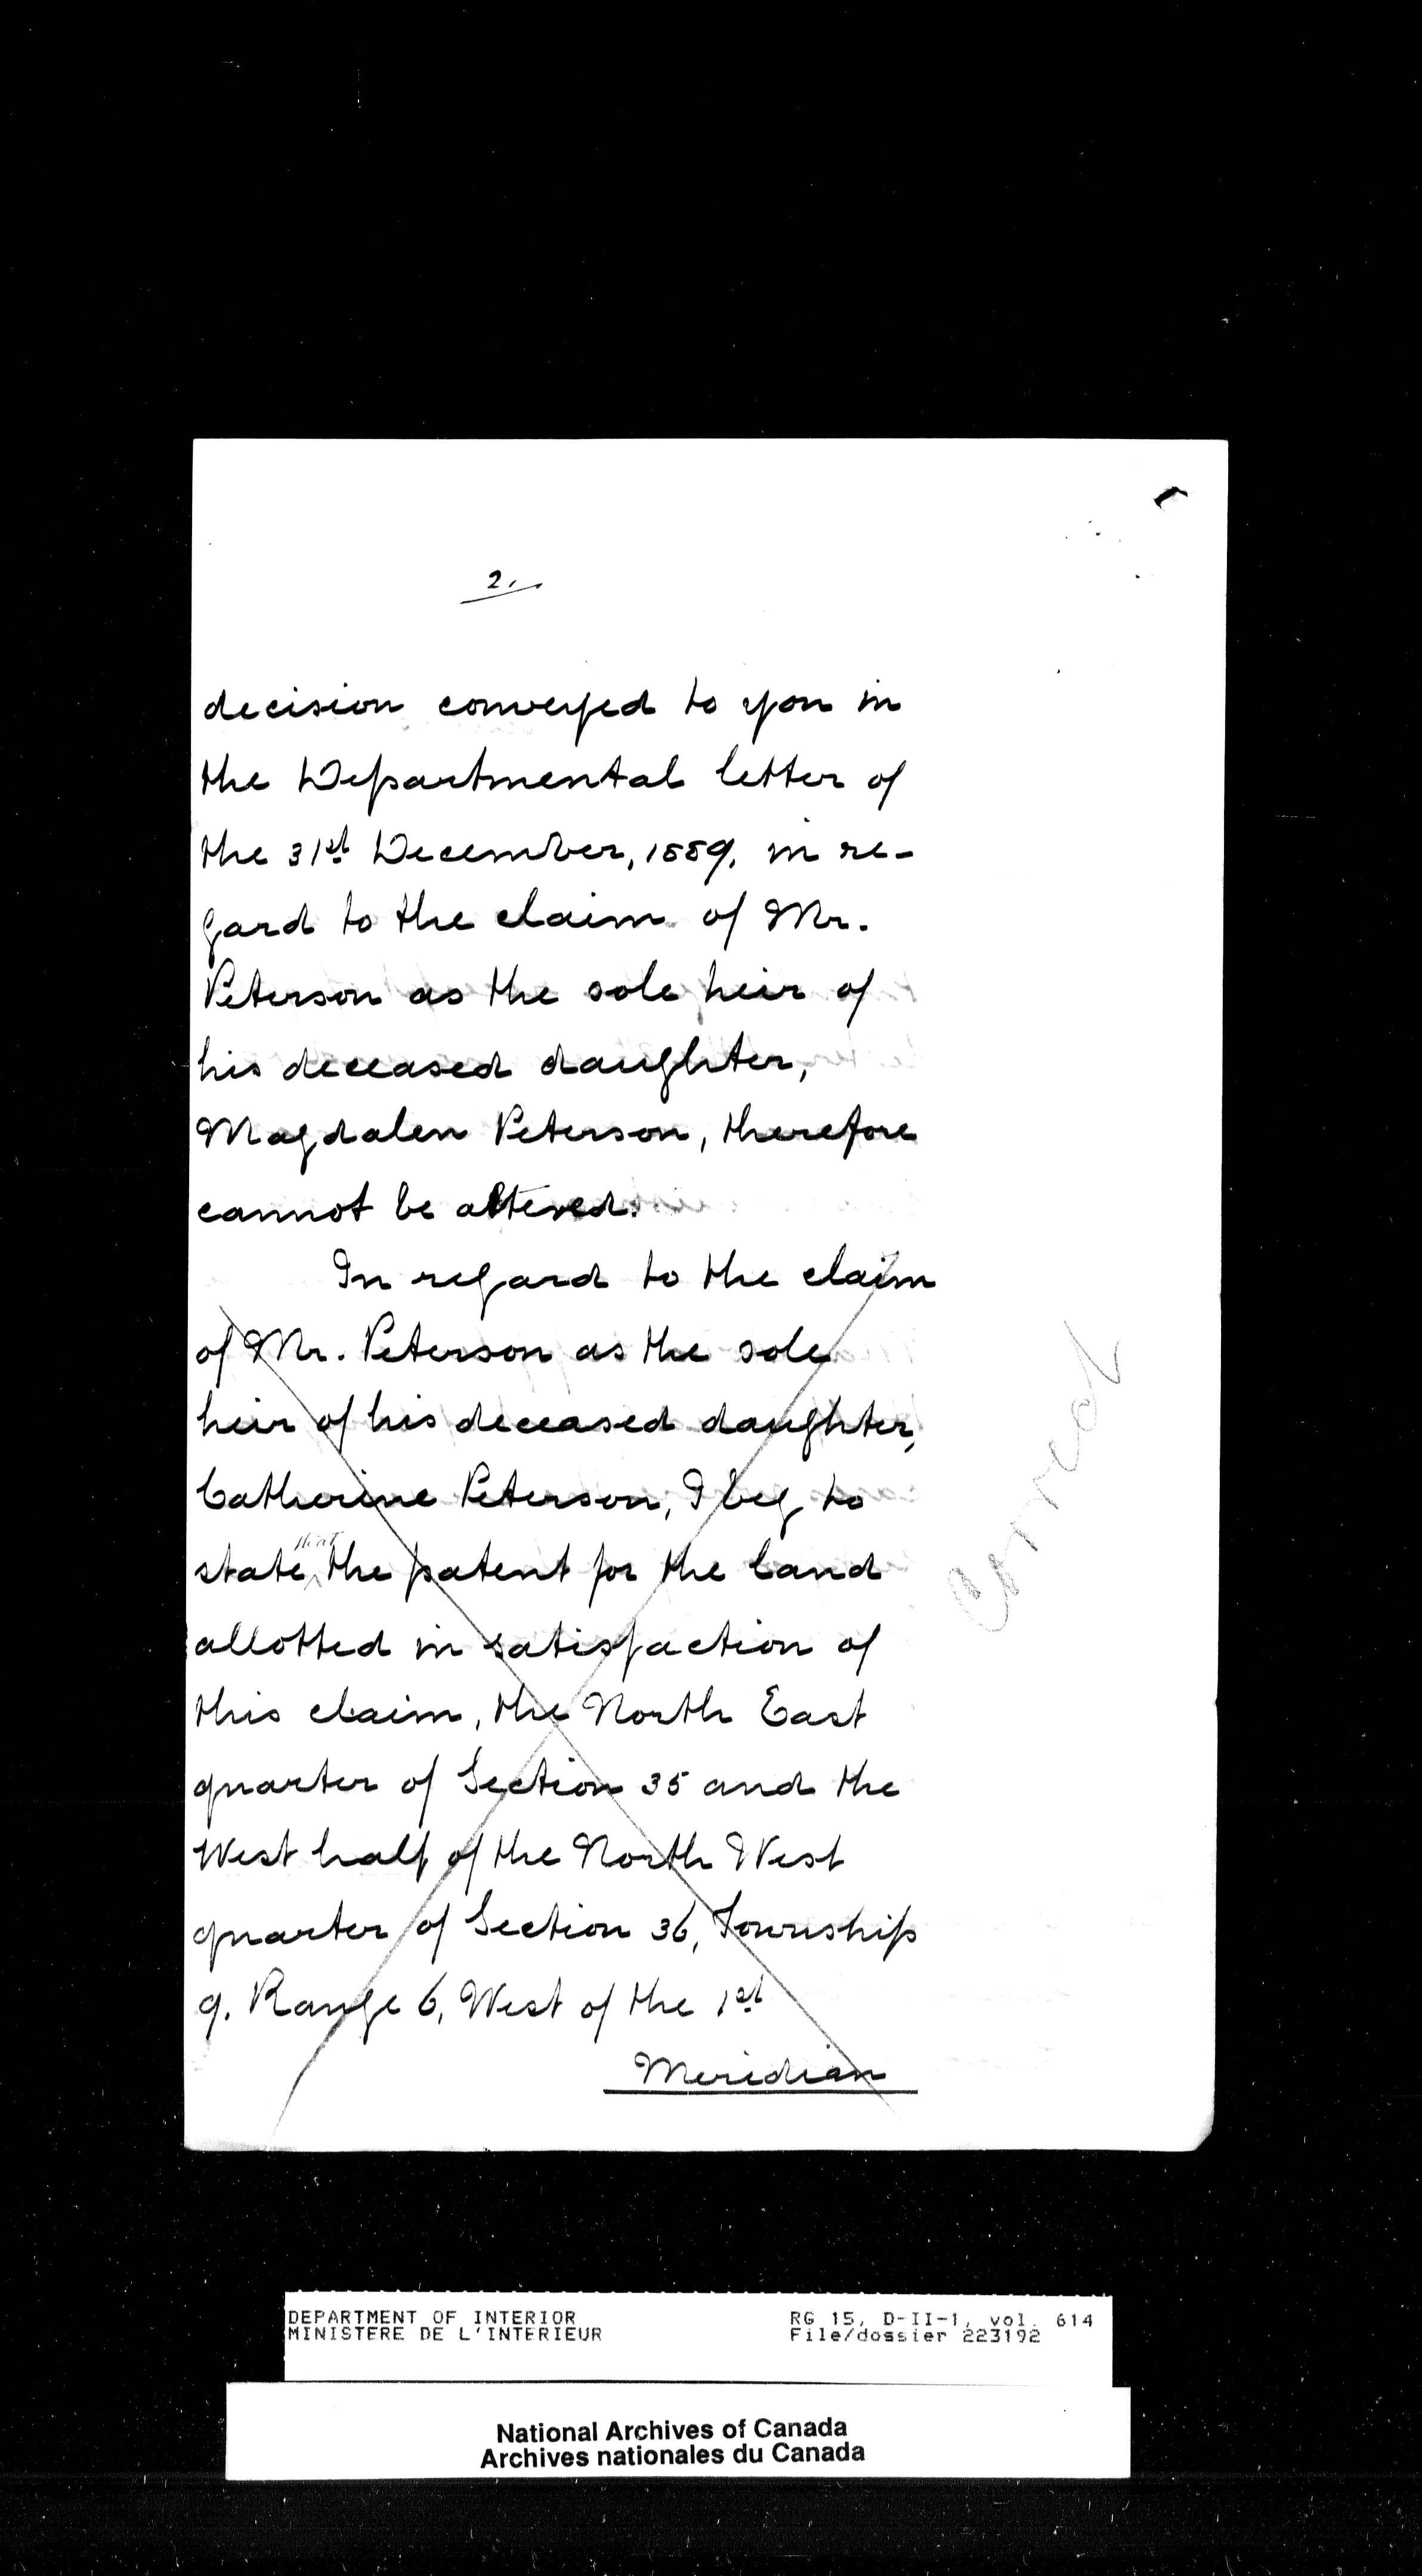 2.
decision conveyed to you in
the Departmental letter of
the 31st December, 1889, in re-
gard to the claim of Mr.
Peterson as the sole heir of
his deceased daughter,
Magdalen Peterson, therefore
cannot be altered.
In regard to the claim
of Mr. Peterson as the sole
heir of his deceased daughter,
Catherine Peterson, I beg to
state that the patent for the land
allotted in satisfaction of
this claim, the North East
quarter of Section 35 and the
West half of the North West
quarter of Section 36, Township
9. Range 6, West of the 1st
Meridian
DEPARTMENT OF INTERIOR
MINISTERE DE L'INTERIEUR
RG 15, D-II-1, vol. 614
File/dossier 223192
National Archives of Canada
Archives nationales du Canada